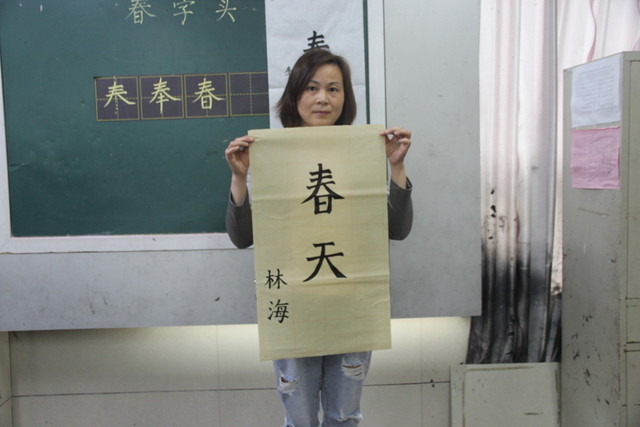 春字头
𡗗奉春
春
春天
林海